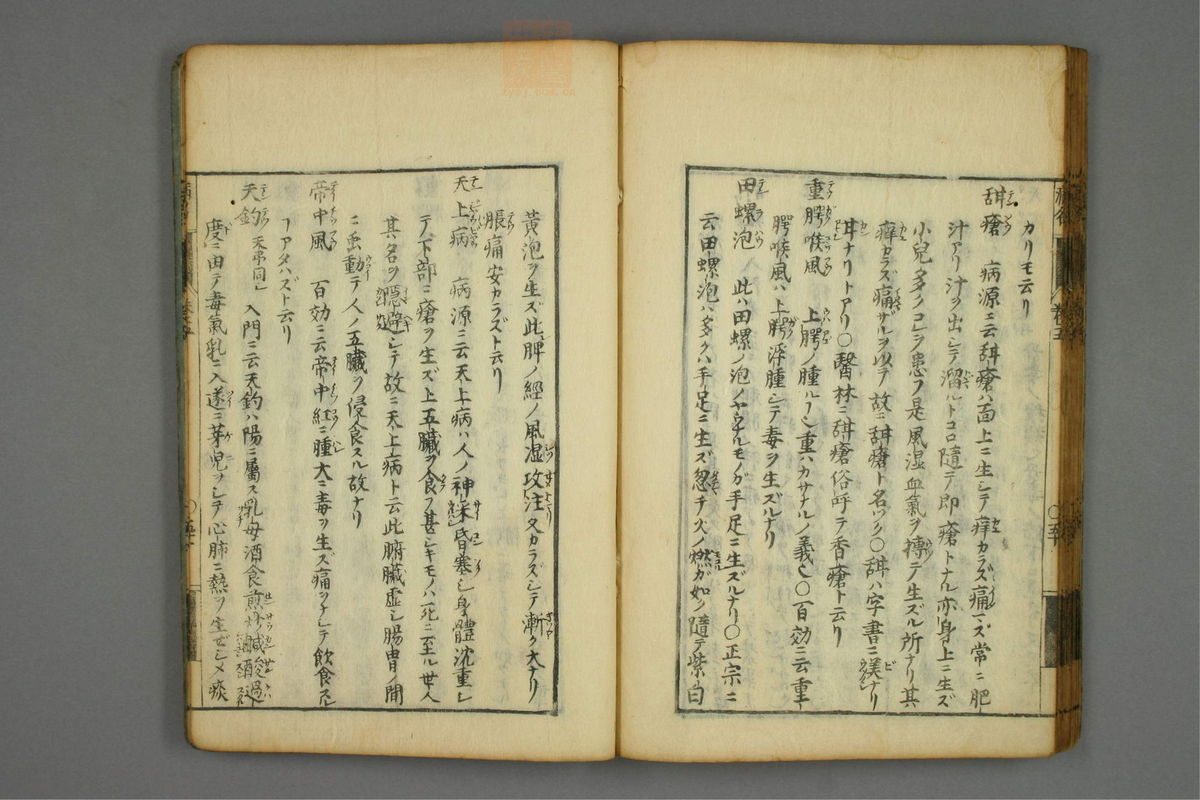 カリモ云リ
甜瘡　病源ニ云甜瘡ハ面上ニ生シテ癢カラズ痛マズ常ニ肥
汁アリ汁ヲ出シテ溜ルトコロ隨テ即瘡トナル亦身上ニ生ズ
小兒多クコレヲ患フ是風湿血氣ヲ搏テ生ズル所ナリ其
癢カラズ痛ザルヲ以テ故ニ甜瘡ト名ヅク〇甜ハ字書ニ美ナリ
甘ナリトアリ〇醫林ニ甜瘡俗呼テ香瘡ト云リ
重腭喉風　上腭ノ腫ル重ハカサナルノ義也〇百効ニ云重
腭喉風ハ上腭浮腫シテ毒ヲ生ズルナリ
田螺泡　此ハ田螺ノ泡ノヤウナルモノガ手足ニ生ズルナリ〇正宗ニ
云田螺泡ハ多クハ手足ニ生ズ忽チ火ノ燃ガ如ク隨テ紫白
黃泡ヲ生ズ此脾ノ經ノ風湿攻注又カラズシテ漸ク大ナリ
脹痛安カラズト云リ
天上病　病源ニ云天上病ハ人ノ神采昏塞シ身體沈重シ
テ下部ニ瘡ヲ生ズ上五臟ヲ食フ甚シキモノハ死ニ至ル世人
其名ヲ隱避シテ故ニ天上病ト云此腑臟虛シ腸胃ノ間
ニ虫動テ人ノ五臟ヲ侵食スル故ナリ
帝中風　百効ニ云帝中紅ニ腫大ニ毒ヲ生ズ痛ヲナシテ飲食スル
フアタハズト云リ
天釣　天弔同シ　入門ニ云天釣ハ陽ニ屬ス乳母酒食煎炒鹹酸過
度ニ由テ毒氣乳ニ入遂ニ芽兒ヲシテ心肺ニ熱ヲ生ゼシメ痰